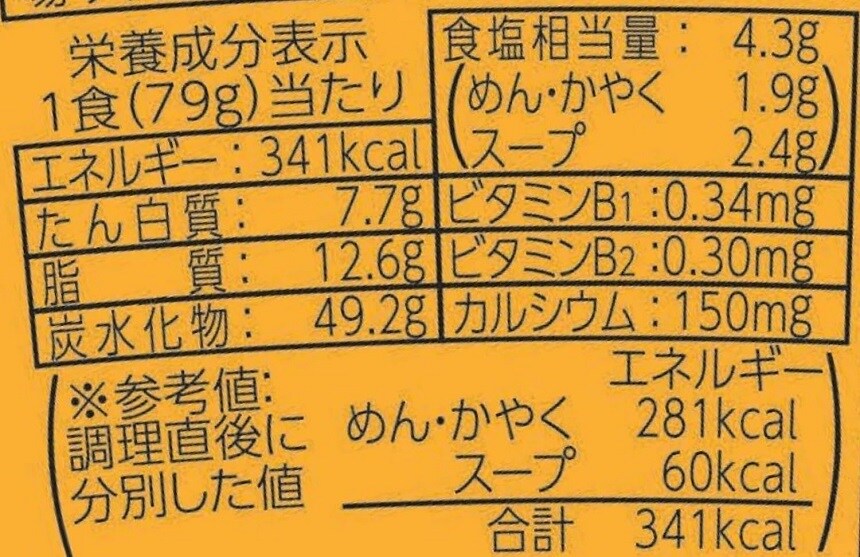 栄養成分表示
1食(79g)当たり
エネルギー：341kcal
たん白質：7.7g
脂質：12.6g
炭水化物：49.2g
食塩相当量：4.3g
(めん・かやく 1.9g
スープ 2.4g)
ビタミンB1：0.34mg
ビタミンB2：0.30mg
カルシウム：150mg
※参考値:
調理直後に
分別した値
エネルギー
めん・かやく 281kcal
スープ 60kcal
合計 341kcal